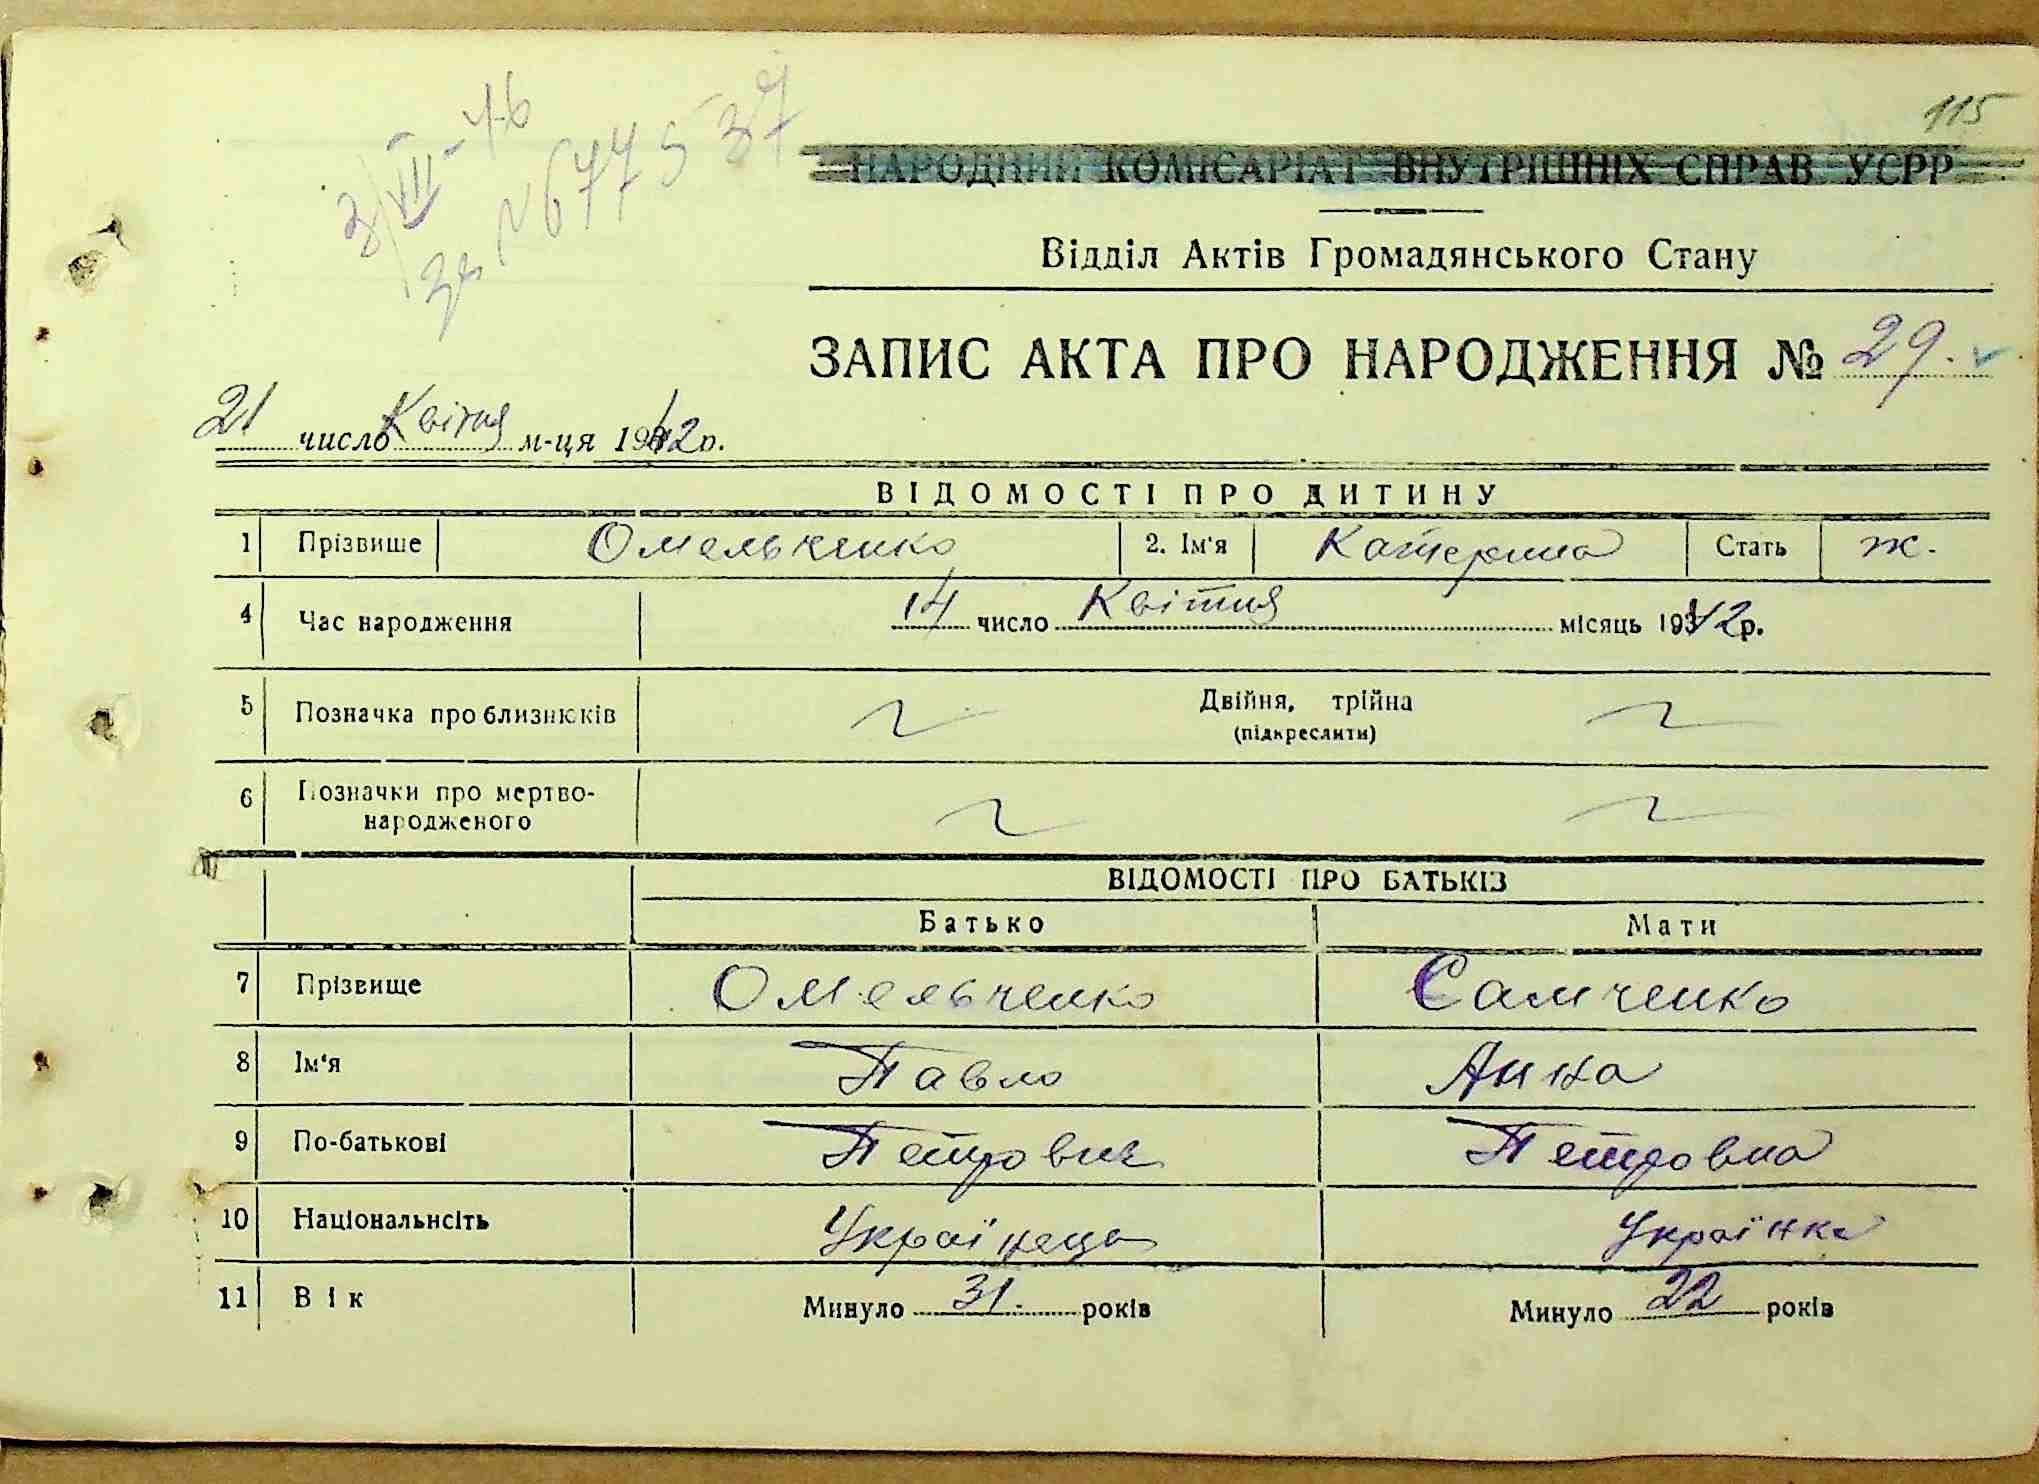 115
3/VII-46
за №677537
НАРОДНИЙ КОМІСАРІАТ ВНУТРІШНІХ СПРАВ УСРР
Відділ Актів Громадянського Стану
ЗАПИС АКТА ПРО НАРОДЖЕННЯ № 29.
21 число Квітня м-ця 1942р.
ВІДОМОСТІ ПРО ДИТИНУ
1 Прізвише Омельченко 2. Ім'я Катерина Стать ж.
4 Час народження 14 число Квітня місяць 1942р.
5 Позначка про близнюків Двійня, трійна
(підкреслити)
6 Позначки про мертво-
народженого
ВІДОМОСТІ ПРО БАТЬКІВ
Батько Мати
7 Прізвище Омельченко Самченко
8 Ім'я Павло Анна
9 По-батькові Петрович Петровна
10 Національнсіть Українець Українка
11 Вік Минуло 31. років Минуло 22 років